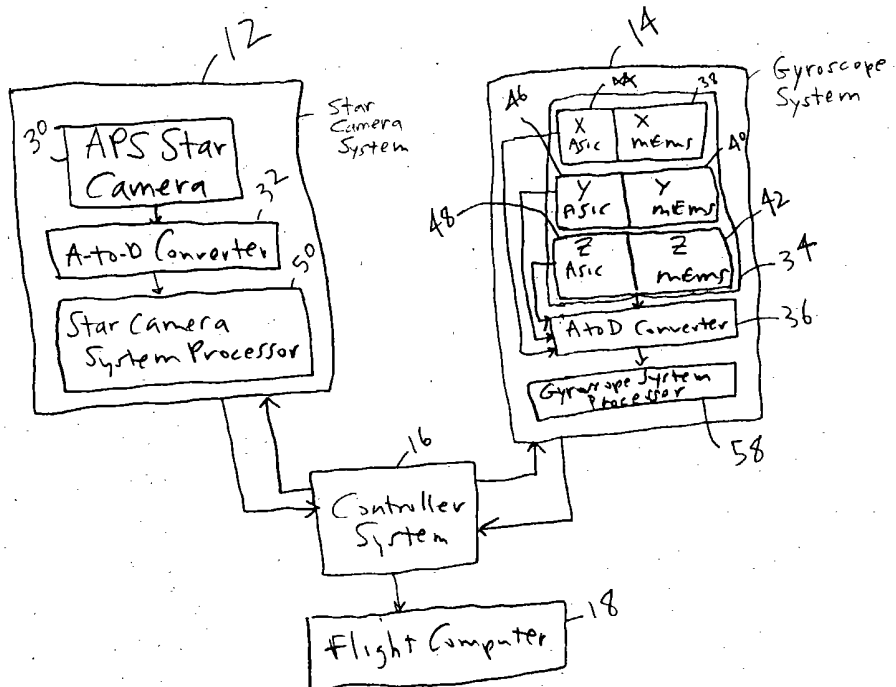 12
Star
Camera
System
30
APS Star
Camera
32
A-to-D Converter
50
Star Camera
System Processor
14
Gyroscope
System
46
44
38
X
ASIC
X
MEMS
40
Y
ASIC
Y
MEMS
48
42
Z
ASIC
Z
MEMS
34
A to D Converter
36
Gyroscope System
Processor
58
16
Controller
System
Flight Computer
18